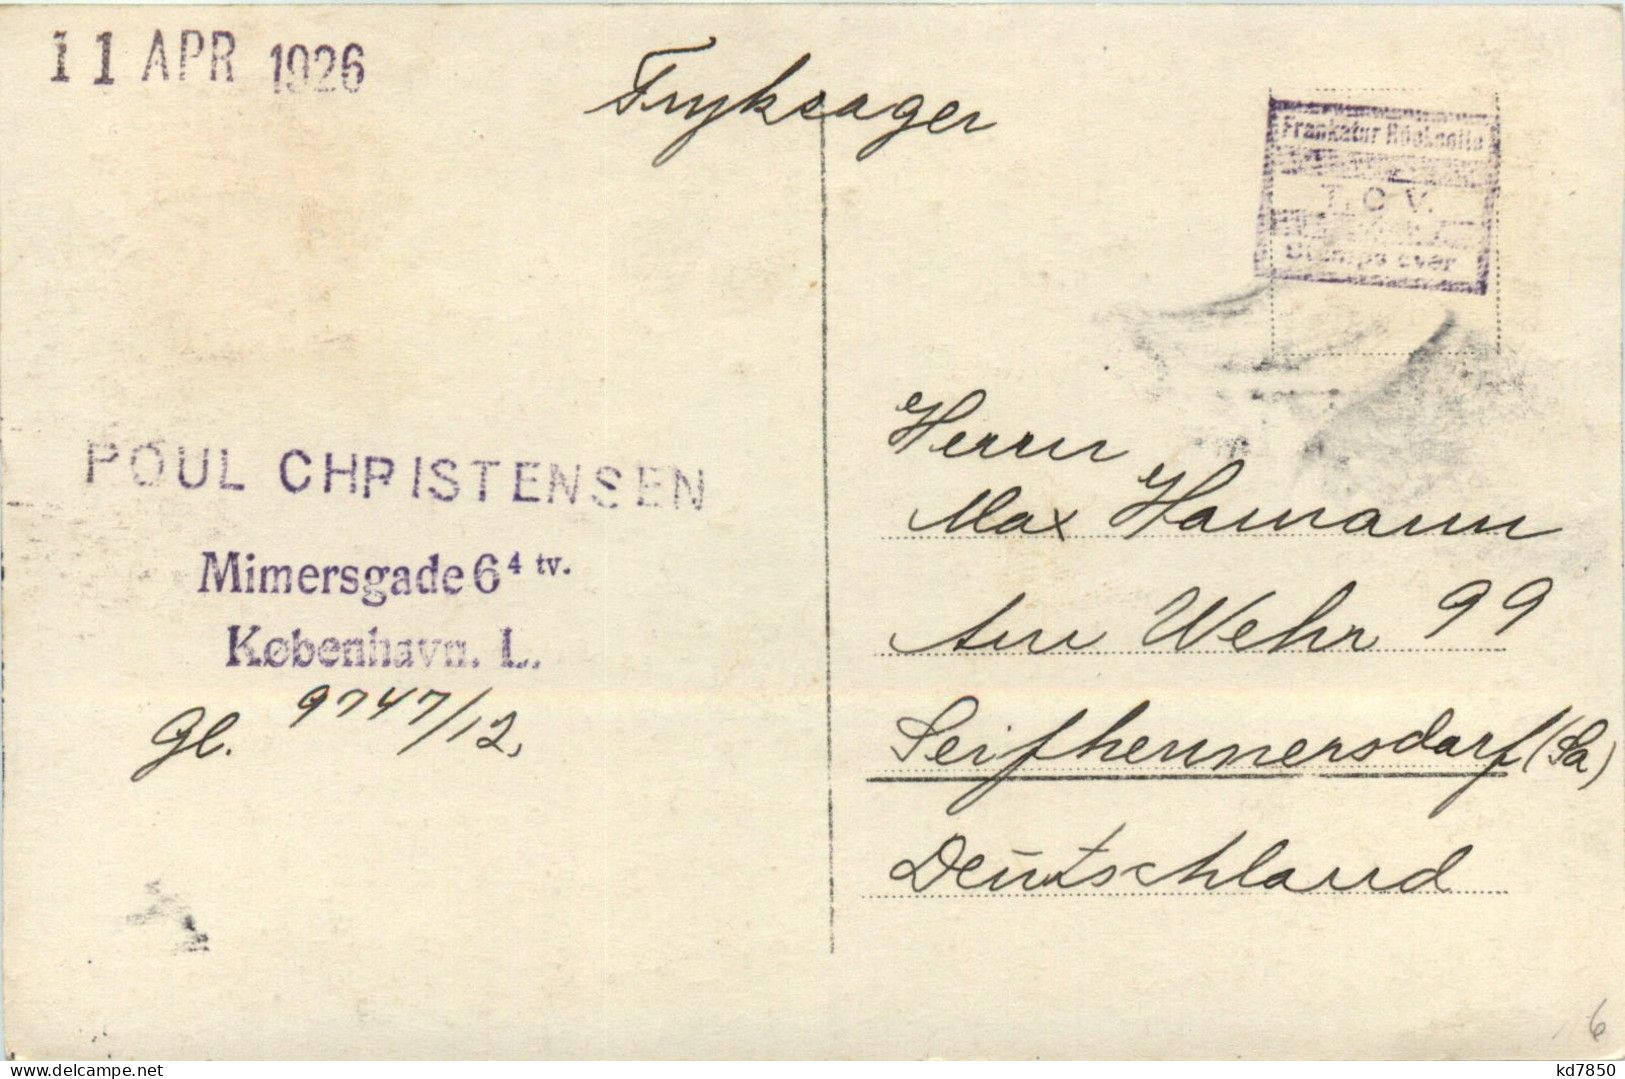 11 APR 1926
Tryksager
Frankatur Rückseite
T.C.V.
Stamps over
POUL CHRISTENSEN
Mimersgade 6⁴ tv.
København. L.
Gl. 9747/12,
Herrn
Max Hamann
Am Wehr 99
Seifhennersdorf (Sa)
Deutschland
6
kd7850